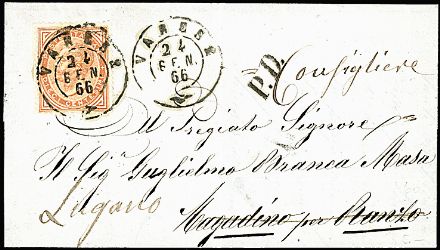 VARESE
24
GEN.
66
VARESE
24
GEN.
66
P.D.
Consigliere
Al Pregiato Signore
Il Sig.r Guglielmo Branca Masa
Lugano
Magadino per